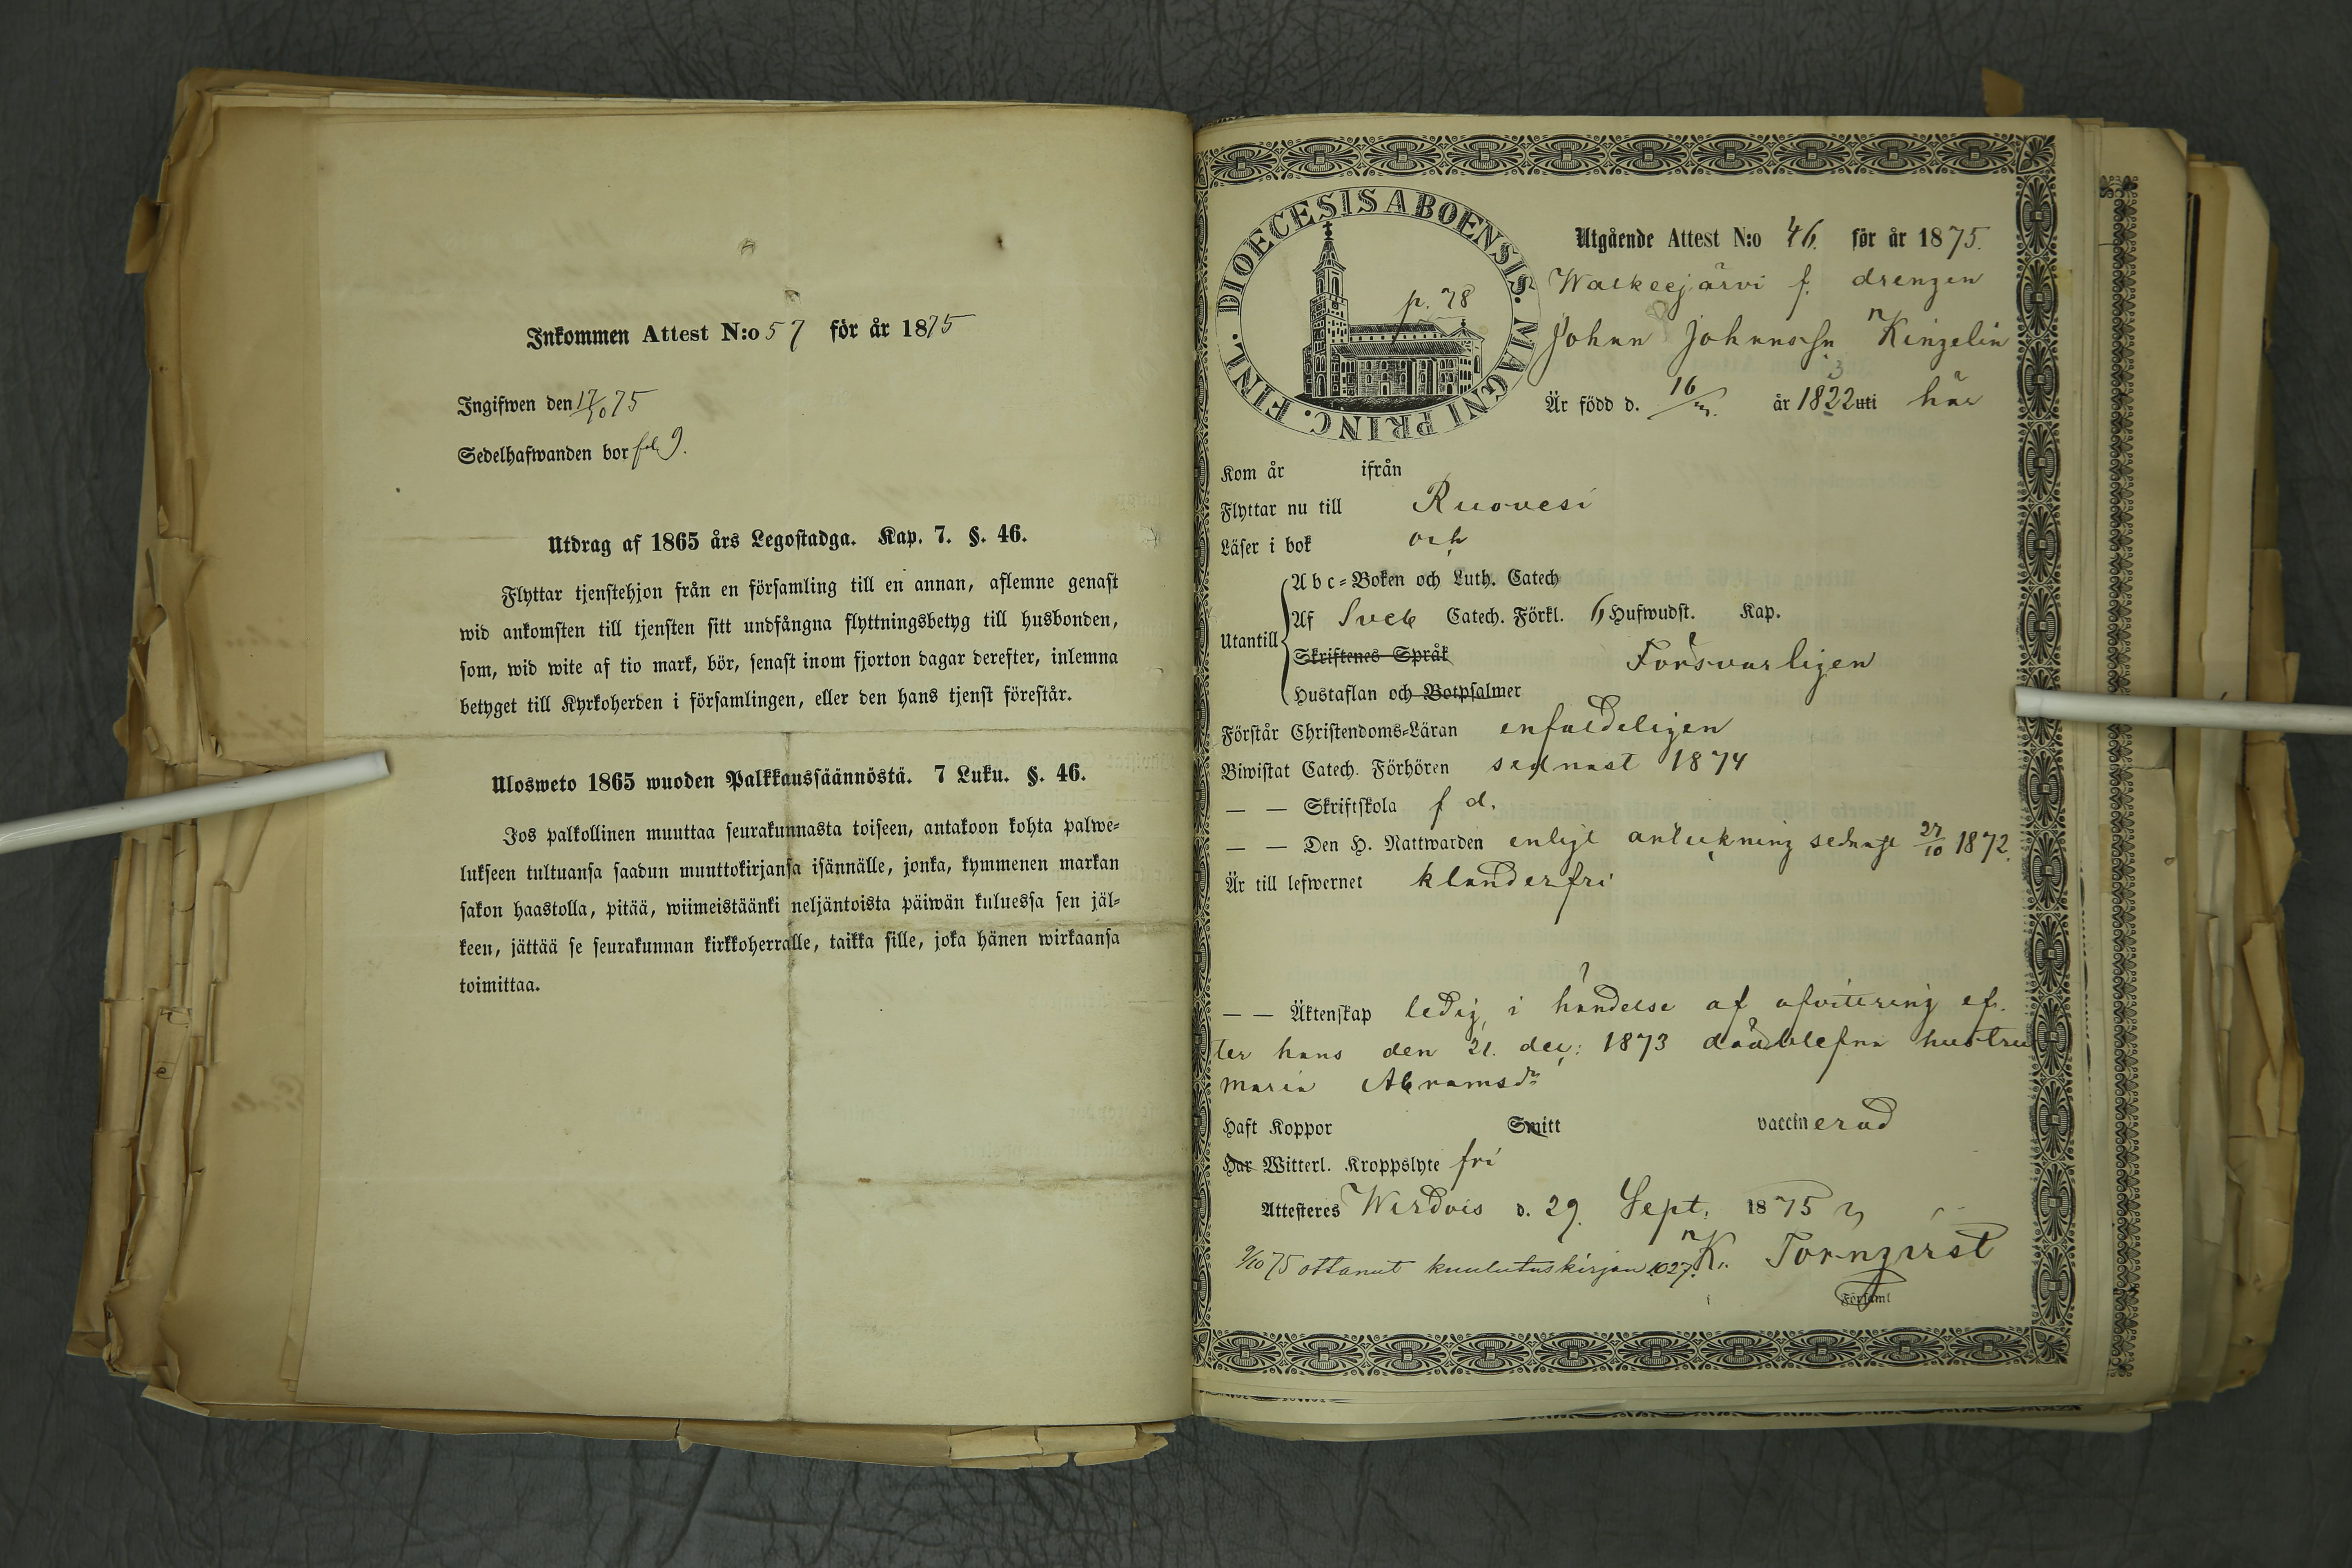 Inkommen Attest N:o 57 för år 1875
Ingifwen den 17/10 75
Sedelhafwanden bor fol 9.
Utdrag af 1865 års Legostadga. Kap. 7. §. 46.
Flyttar tjenstehjon från en församling till en annan, aflemne genast
wid ankomsten till tjensten sitt undfångna flyttningsbetyg till husbonden,
som, wid wite af tio mark, bör, senast inom fjorton dagar derefter, inlemna
betyget till Kyrkoherden i församlingen, eller den hans tjenst förestår.
Ulosweto 1865 wuoden Palkkaussäännöstä. 7 Luku. §. 46.
Jos palkollinen muuttaa seurakunnasta toiseen, antakoon kohta palwe-
lukseen tultuansa saadun muuttokirjansa isännälle, jonka, kymmenen markan
sakon haastolla, pitää, wiimeistäänki neljäntoista päiwän kuluessa sen jäl-
keen, jättää se seurakunnan kirkkoherralle, taikka sille, joka hänen wirkaansa
toimittaa.
DIOECESIS ABOENSIS. MAGNI PRINC. FINL.
p. 78
Utgående Attest N:o 46. för år 1875.
Walkeejärvi f. drengen
Johan Johansson Ringelin
Är född d. 16/ år 1822 uti här
Kom år ifrån
Flyttar nu till Ruovesi
Läser i bok och
Utantill
Abc-Boken och Luth. Catech
Af Sveb Catech. Förkl. 6 Hufwudst. Kap.
Skriftenes Språk Försvarligen
Hustaflan och Botpsalmer
Förstår Christendoms-Läran enfaldeligen
Biwistat Catech. Förhören sednast 1874
— — Skriftskola f d.
— — Den H. Nattwarden enligt anteckning sednast 27/10 1872.
Är till lefwernet klanderfri
— — Äktenskap ledig, i händelse af afvittring ef-
ter hans den 21. dec: 1873 dödblefna hustru
Maria Abramsdr
Haft Koppor Smitt vaccinerad
Har Witterl. Kroppslyte fri
Attesteres Wirdois d. 29. Sept. 1875
K. Tornqvist
9/10 75 ottanut kuulutuskirjan 1027.
Församl